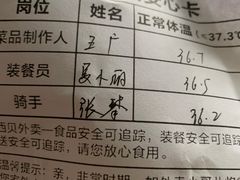 安心卡
岗位 姓名 正常体温(<37.3℃
菜品制作人 王广 36.7
装餐员 36.5
骑手 张 36.2
西贝外卖—食品安全可追踪，装餐安全可追踪，
全可追踪，请您放心食用。
温馨提示：亲，非常时期